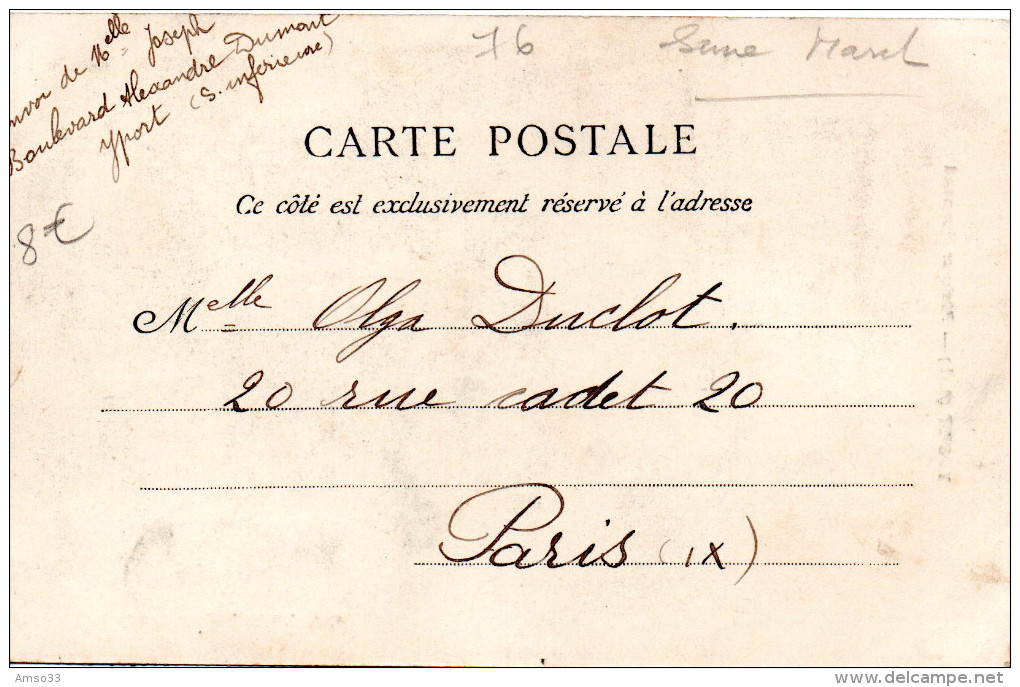 envoi de Melle Joseph
Boulevard Alexandre Dumont
yport (S. inferieure)
76
8€
CARTE POSTALE
Ce côté est exclusivement réservé à l'adresse
Melle Olga Duclot.
20 rue cadet 20
Paris (IX)
Amso33
delcampe.net